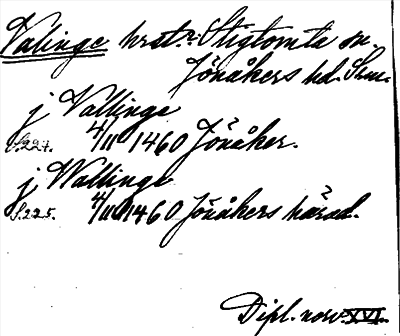 Valinge hrst.? Stigtomta sn.
Jönåkers hd. Srm.
j Vallinge
S.227. 4/11 1460 Jönåker.
j Wallinge
S.225. 4/11 1460 Jönåkers härad.
Dipl. norv. XVI.